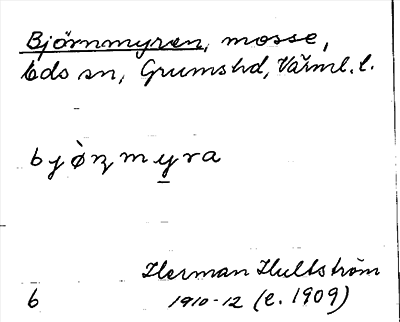 Björnmyren, mosse,
Eds sn, Grums hd, Värml. l.
bjø̀ʀ̥myra
Herman Hultström
6 1910-12 (e. 1909)